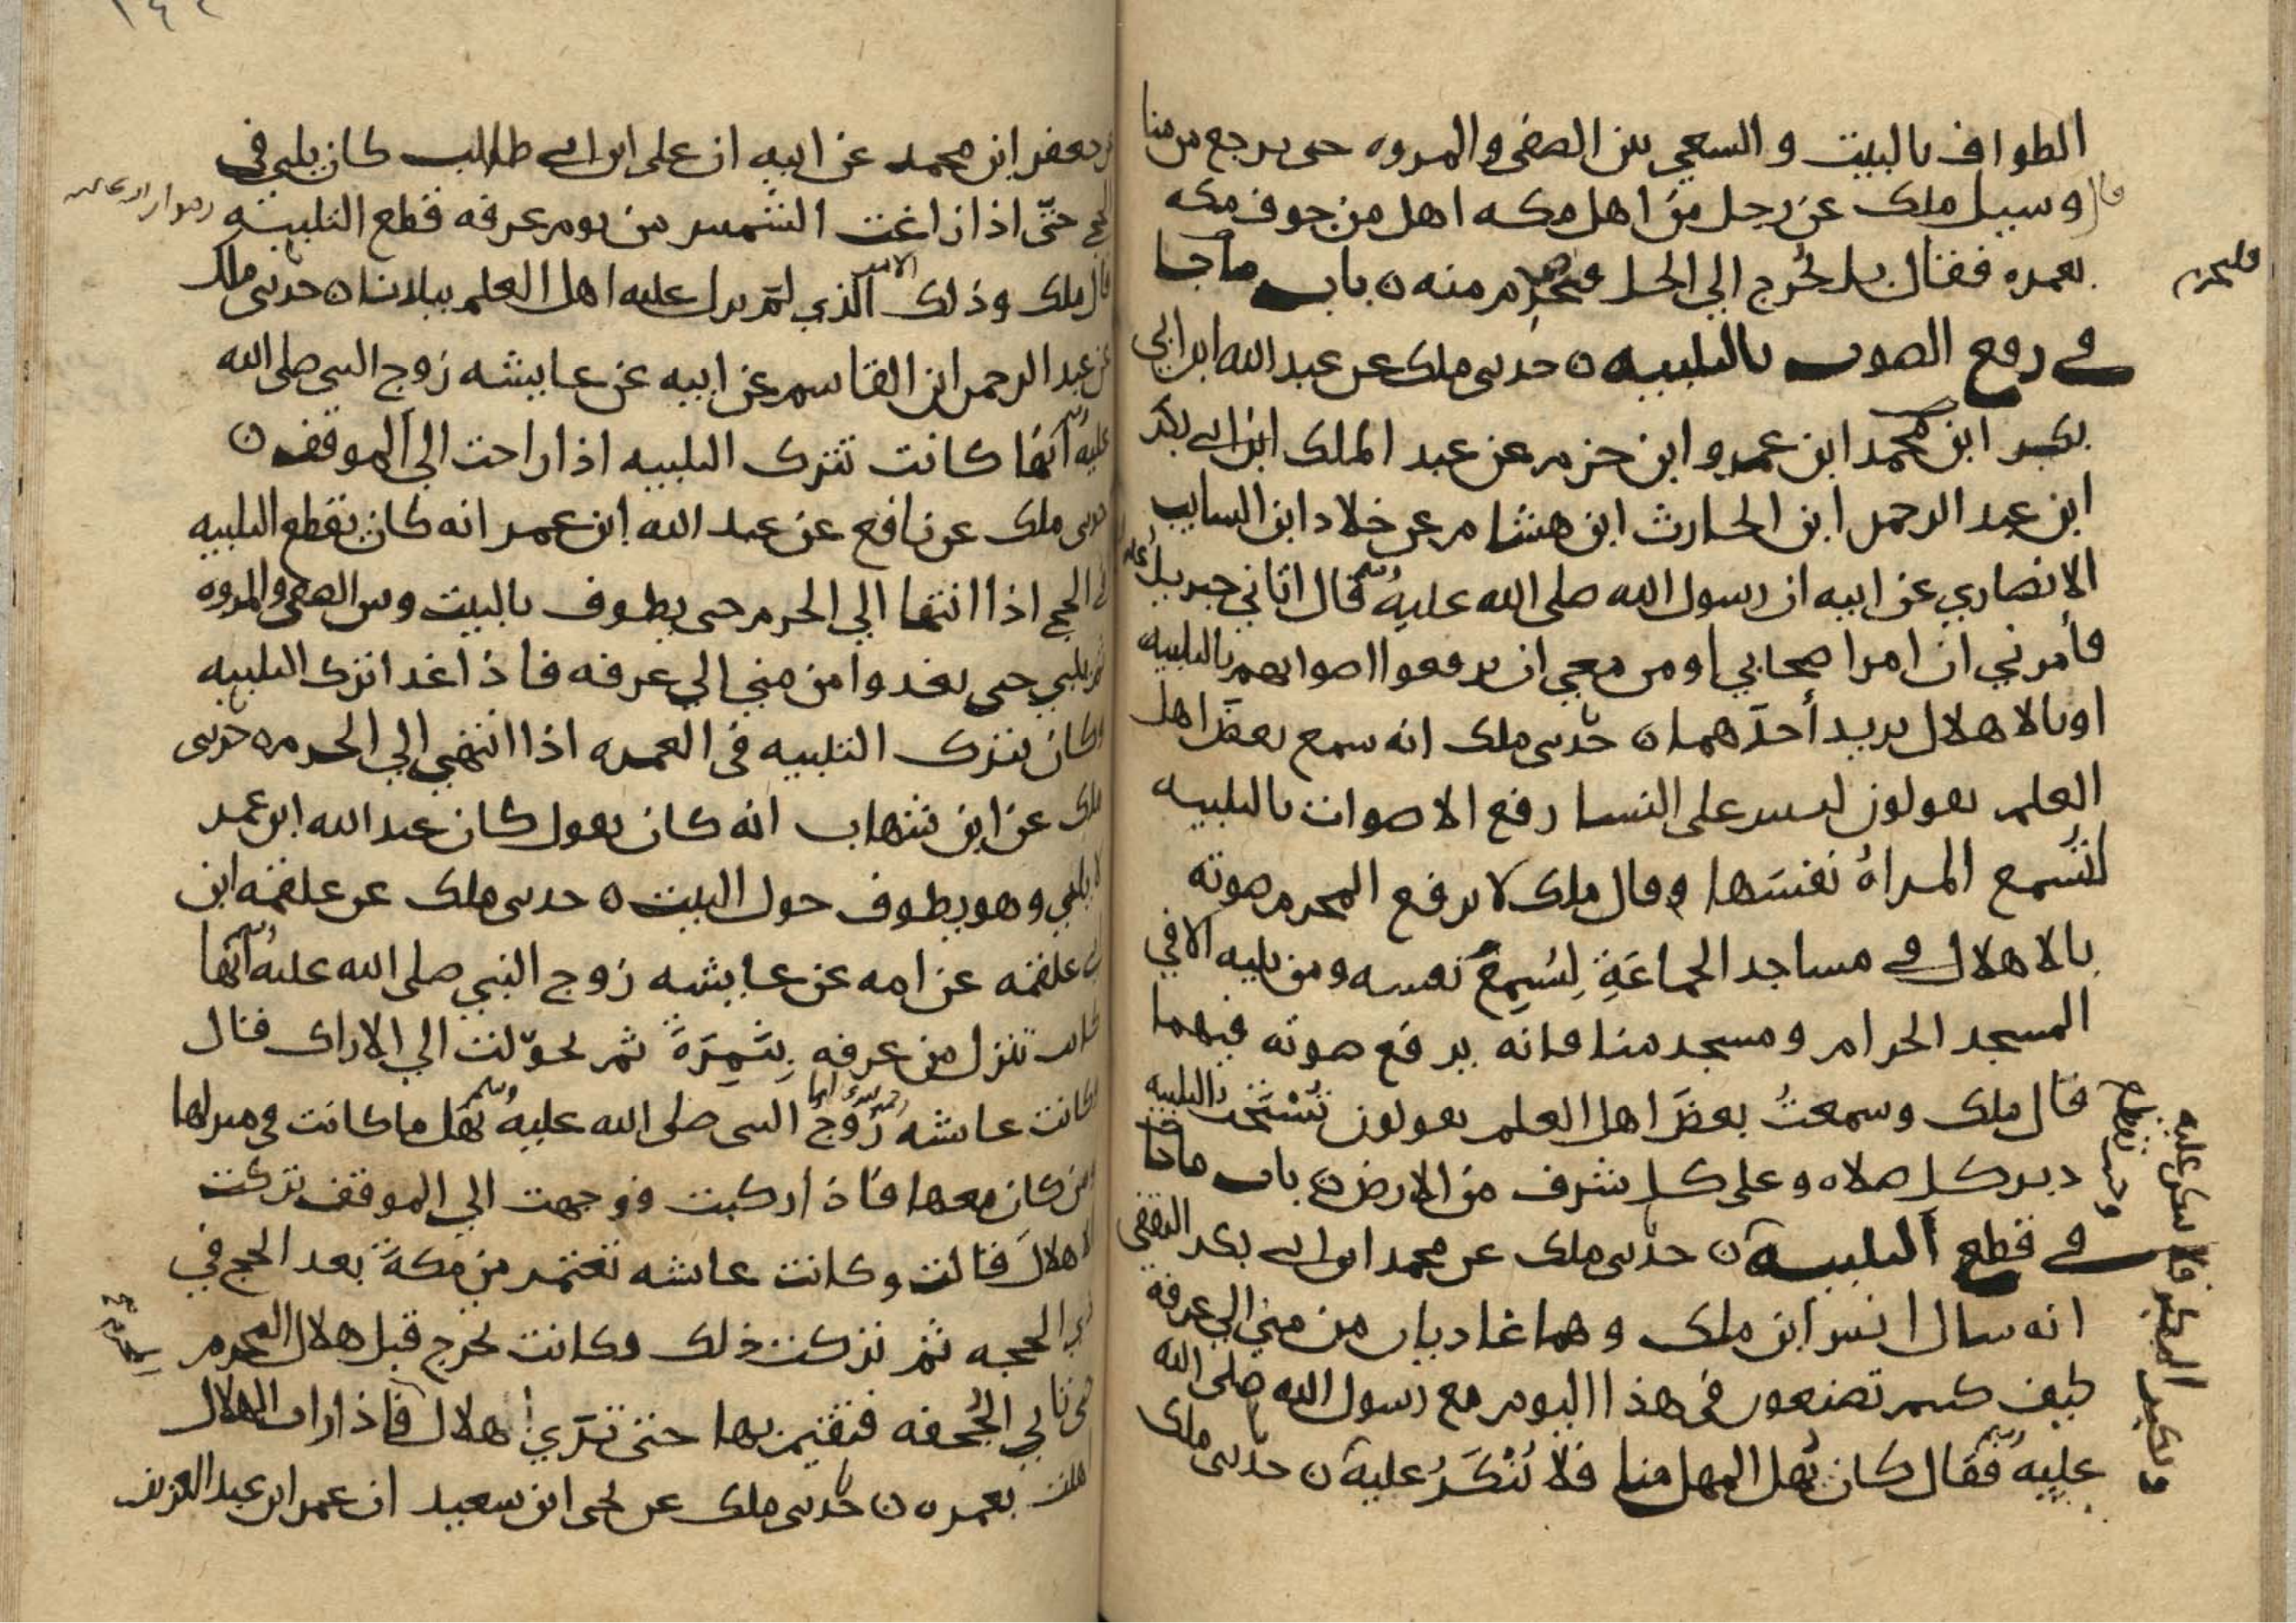 الطواف بالبيت والسعي بين الصفى والمروه حتى يرجع من منا
قال وسيل ملك عن رجل من اهل مكه اهل من جوف مكه
بعمره فقال بل يخرج الي الحل فيحرم منه ه باب ماجا
فليحرم
في رفع الصوت بالتلبيه ه حدثني ملك عن عبد الله ابن ابي
بكر ابن محمد ابن عمرو ابن حزم عن عبد الملك ابن ابي بكر
ابن عبد الرحمن ابن الحارث ابن هشام عن خلاد ابن السايب
الانصاري عن ابيه ان رسول الله صلى الله عليه وسلم قال اتاني جبريل عليه
فأمرني ان امر اصحابي او من معي ان يرفعوا اصواتهم بالتلبيه
او بالاهلال يريد أحدهما ه حدثني ملك انه سمع بعض اهل
العلم يقولون ليس على النسا رفع الاصوات بالتلبيه
لتسمع المراة نفسها وقال ملك لا يرفع المحرم صوته
بالاهلال في مساجد الجماعة ليسمع نفسه ومن يليه الا في
المسجد الحرام ومسجد منا فانه يرفع صوته فيهما
قال ملك وسمعت بعض اهل العلم يقولون تستحب التلبيه
دبر كل صلاه وعلى كل شرف من الارض ه باب ماجا
في قطع التلبيه ه حدثني ملك عن محمد ابن ابي بكر الثقفي
انه سال انس ابن ملك وهما غاديان من منى الي عرفة
كيف كنتم تصنعون في هذا اليوم مع رسول الله صلى الله
عليه وسلم فقال كان يهل المهل منا فلا ينكر عليه ه حدثني ملك
ويكبر المكبر فلا ينكر عليه
عن جعفر ابن محمد عن ابيه ان على ابن ابي طالب كان يلبي في
الحج حتى اذا زاغت الشمس من يوم عرفه قطع التلبيه
قال ملك وذلك الامر الذي لم يزل عليه اهل العلم ببلدنا ه حدثني ملك
عن عبد الرحمن ابن القاسم عن ابيه عن عايشه زوج النبي صلى الله
عليه وسلم أنها كانت تترك التلبيه اذا راحت الي الموقف ه
حدثني ملك عن نافع عن عبد الله ابن عمر انه كان يقطع التلبيه
في الحج اذا انتها الي الحرم حتى يطوف بالبيت وبين الصفى والمروه
ثم يلبي حتى يغدوا من منى الي عرفه فاذا غدا ترك التلبيه
وكان يترك التلبيه في العمره اذا انتهى الي الحرم ه حدثني
ملك عن ابن شهاب انه كان يقول كان عبد الله ابن عمر
لا يلبي وهو يطوف حول البيت ه حدثني ملك عن علقمه ابن
ابي علقمه عن امه عن عايشه زوج النبي صلى الله عليه وسلم أنها
كانت تنزل من عرفه بنمرة ثم تحولت الي الاراك قال
وكانت عايشه زوج النبي صلى الله عليه وسلم تهل ما كانت في منزلها
ومن كان معها فاذا ركبت فوجهت الي الموقف تركت
الاهلال قالت وكانت عايشه تعتمر من مكة بعد الحج في
ذي الحجه ثم تركت ذلك وكانت تخرج قبل هلال المحرم
حتى تاتي الجحفه فتقيم بها حتى ترى الهلال فاذا رات الهلال
اهلت بعمره ه حدثني ملك عن يحيى ابن سعيد ان عمر ابن عبد العزيز